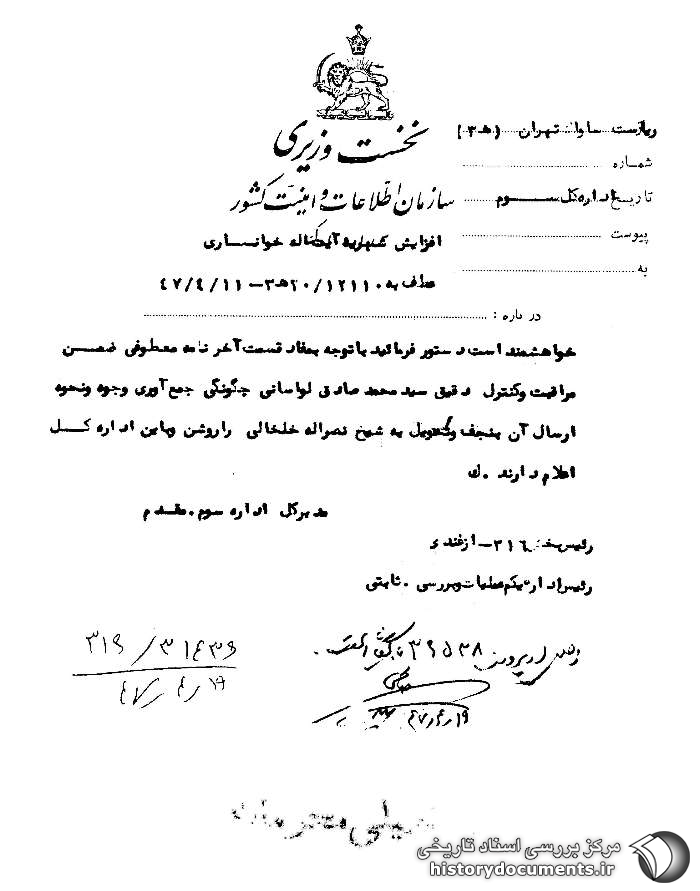 نخست وزیری
سازمان اطلاعات و امنیت کشور
ریاست ساواک تهران (ه‍ ۳)
شماره
تاریخ اداره کل سوم
پیوست
افزایش شهریه آیت‌اله خوانساری
به
عطف به ۲۰/۱۲۱۱۰ ه‍ ۳ – ۴۷/۴/۱۱
درباره :
خواهشمند است دستور فرمائید با توجه بمفاد قسمت آخر نامه معطوفی ضمن
مراقبت و کنترل دقیق سید محمد صادق لواسانی چگونگی جمع‌آوری وجوه و نحوه
ارسال آن بنجف و تحویل به شیخ نصراله خلخالی را روشن و باین اداره کل
اعلام دارند . ک
مدیر کل اداره سوم . مقدم
رئیس بخش ۳۱۶ – ازغندی
رئیس اداره یکم عملیات و بررسی . ثابتی
۳۹۵۳۸
۳۱۶/۳۱۴۳۹
۴۷/۴/۱۹
۴۷/۴/۱۹
خیلی محرمانه
مرکز بررسی اسناد تاریخی
historydocuments.ir